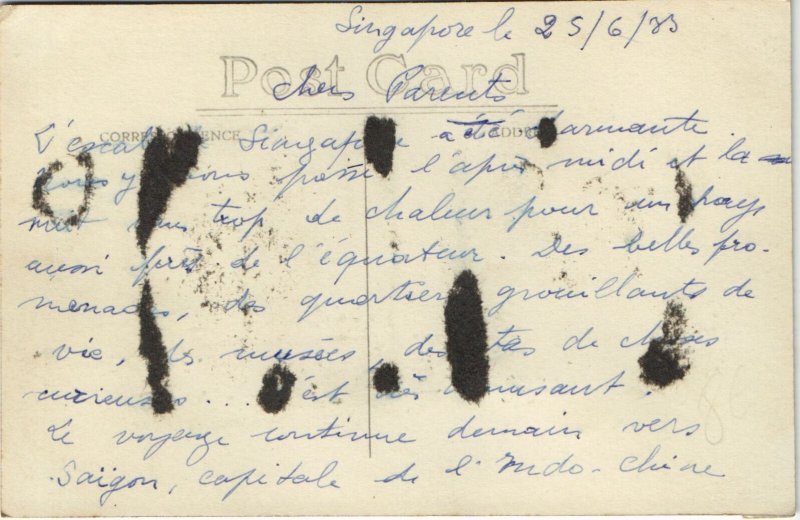 Singapore le 25/6/33
Post Card
chers Parents
CORRESPONDENCE ADD
L'escale Singapore a été charmante.
nous y avons passé l'après midi et la
nuit sans trop de chaleur pour un pays
aussi près de l'équateur. Des belles pro-
menades, des quartiers grouillants de
vie, des musées, des tas de choses
curieuses... c'est très amusant.
Le voyage continue demain vers
Saïgon, capitale de l'Indo-chine